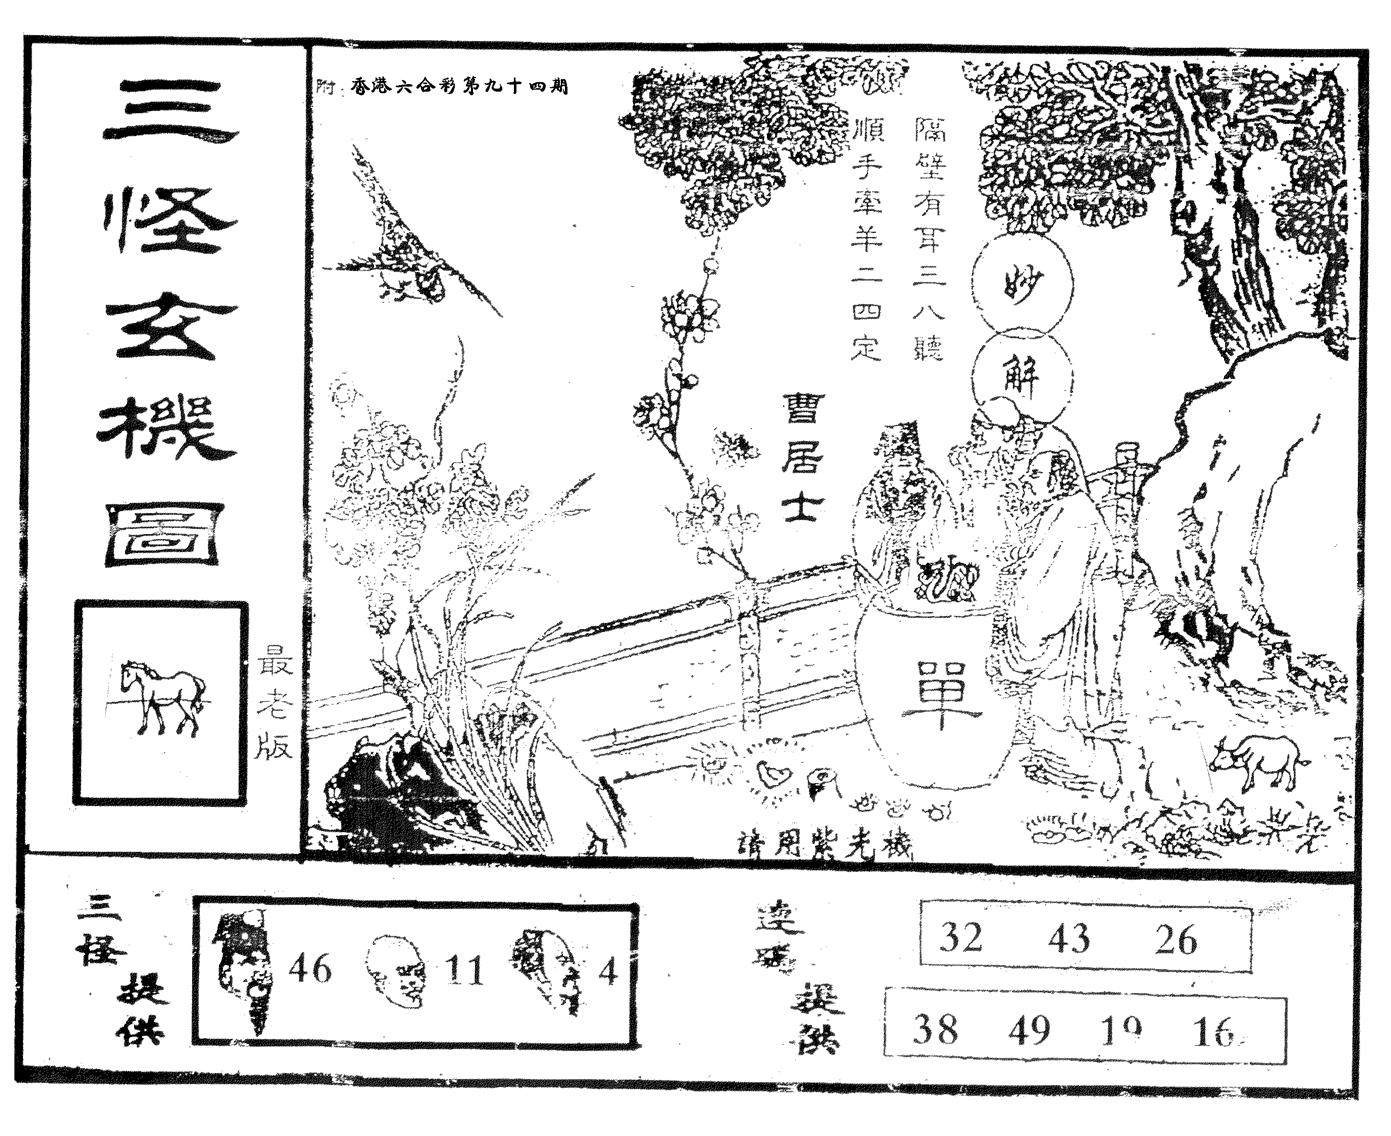 三怪玄機圖
最老版
附 香港六合彩第九十四期
妙解
隔壁有耳三八聽
順手牽羊二四定
曹居士
單
請用紫光機
三怪
提供
46 11 4
連碼
提供
32 43 26
38 49 19 16